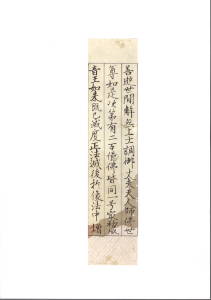 善逝世間解無上士調御丈夫天人師佛世
尊如是次第有二万億佛皆同一号
音王如来既已滅度正法滅後於像法中增